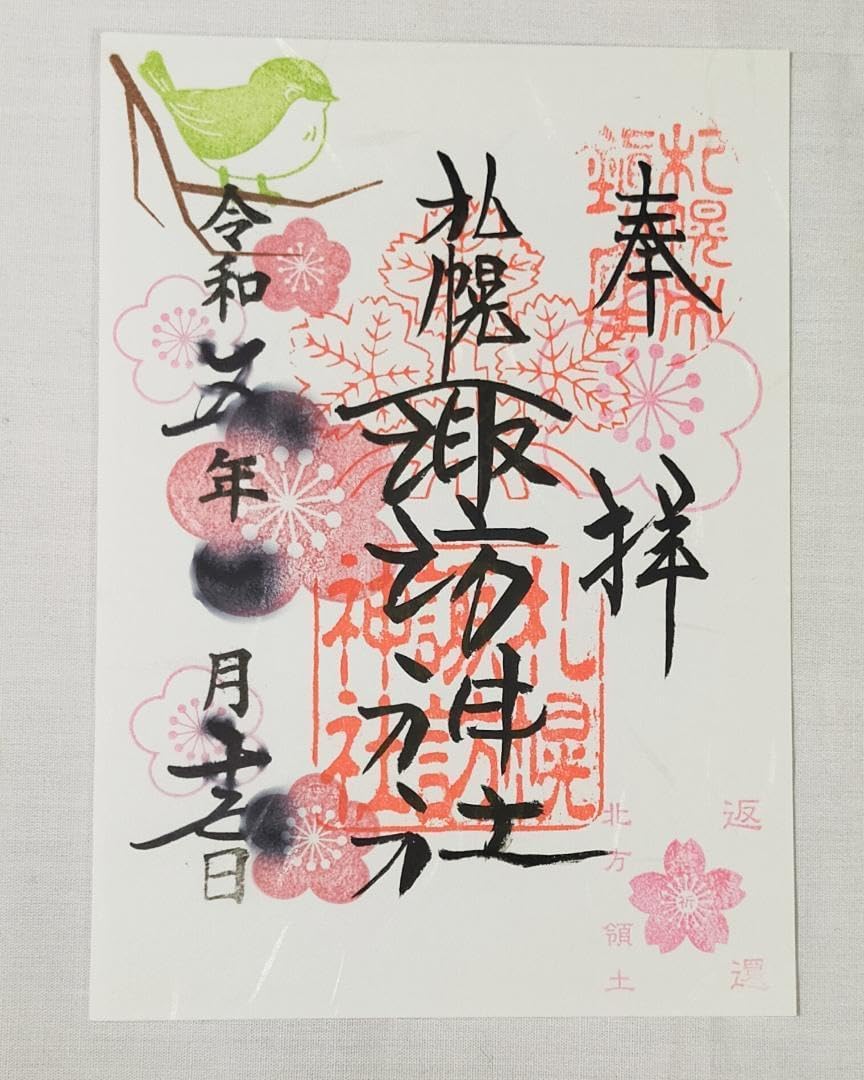 奉拝
札幌諏訪神社
札幌
諏訪
神社
令和五年 月十 日
返還
祈
北方領土